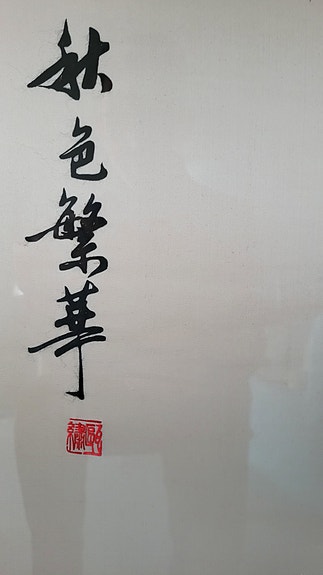 秋色繁華